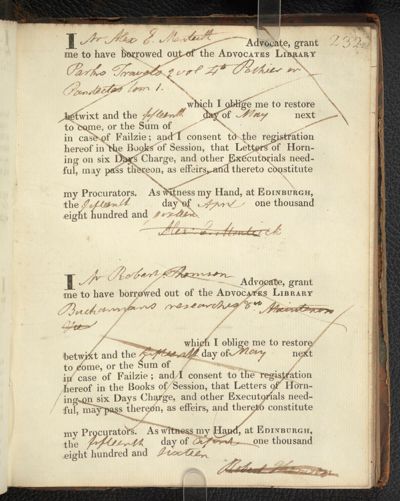 232
I Mr Alex E. Advocate, grant
me to have borrowed out of the ADVOCATES LIBRARY
Parks Travels 2 vol 4to Pothier on
Pandectas tom 1.
which I oblige me to restore
betwixt and the fifteenth day of May next
to come, or the Sum of
in case of Failzie; and I consent to the registration
hereof in the Books of Session, that Letters of Horn-
ing on six Days Charge, and other Executorials need-
ful, may pass thereon, as effeirs, and thereto constitute
my Procurators. As witness my Hand, at EDINBURGH,
the fifteenth day of April one thousand
eight hundred and sixteen
Alex. E.
I Mr Robert Thomson Advocate, grant
me to have borrowed out of the ADVOCATES LIBRARY
Buchannans researches 8vo
which I oblige me to restore
betwixt and the fifteenth day of May next
to come, or the Sum of
in case of Failzie; and I consent to the registration
hereof in the Books of Session, that Letters of Horn-
ing on six Days Charge, and other Executorials need-
ful, may pass thereon, as effeirs, and thereto constitute
my Procurators. As witness my Hand, at EDINBURGH,
the fifteenth day of April one thousand
eight hundred and sixteen
Robert Thomson